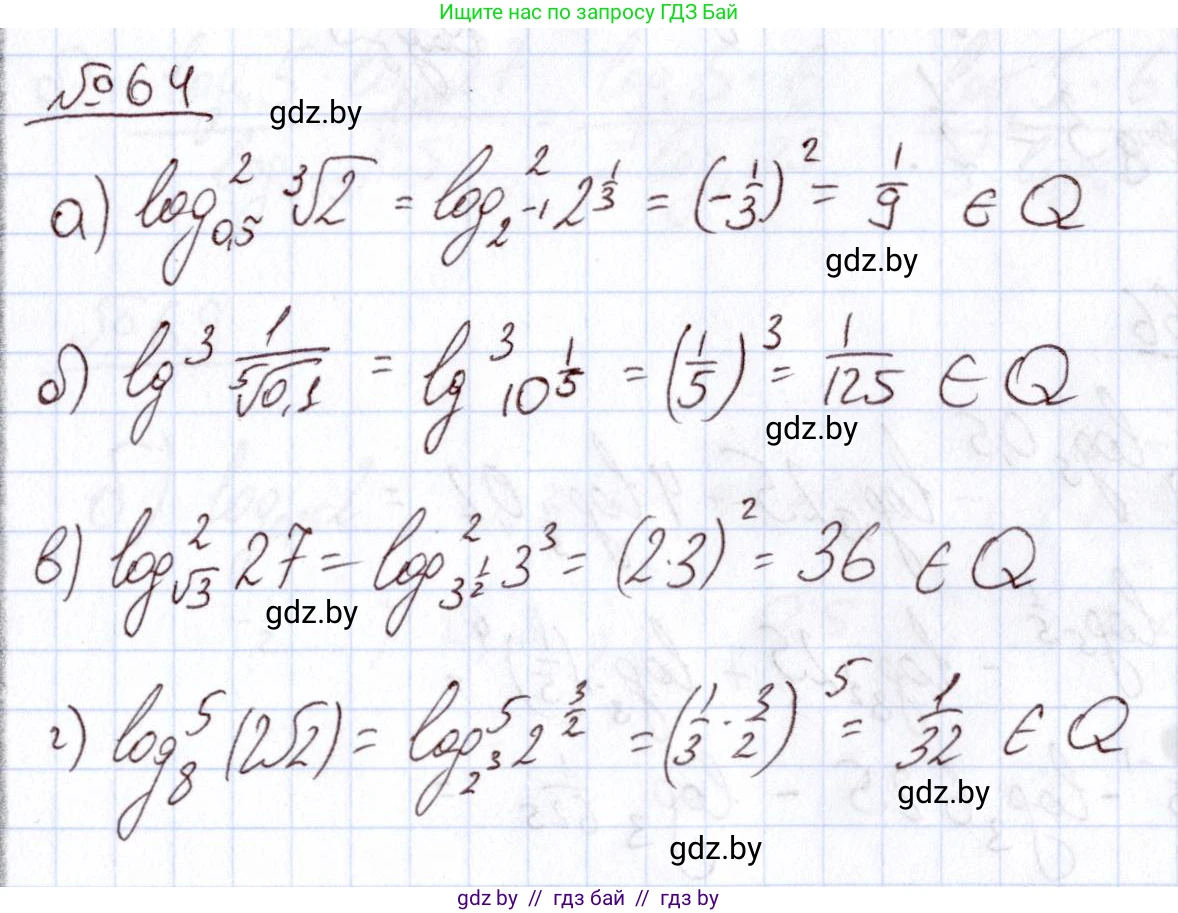 Ищите нас по запросу ГДЗ Бай
№ 64
gdz.by
а) log²₀,₅ ³√2 = log²₂₋₁ 2^(1/3) = (-1/3)² = 1/9 ∈ Q
gdz.by
б) lg³ 1/⁵√0,1 = lg³ 10^(1/5) = (1/5)³ = 1/125 ∈ Q
gdz.by
в) log²_√3 27 = log²_3^(1/2) 3³ = (2·3)² = 36 ∈ Q
gdz.by
г) log⁵₈ (2√2) = log⁵_2³ 2^(3/2) = (1/3 · 3/2)⁵ = 1/32 ∈ Q
gdz.by
gdz.by
gdz by // гдз бай // гдз by